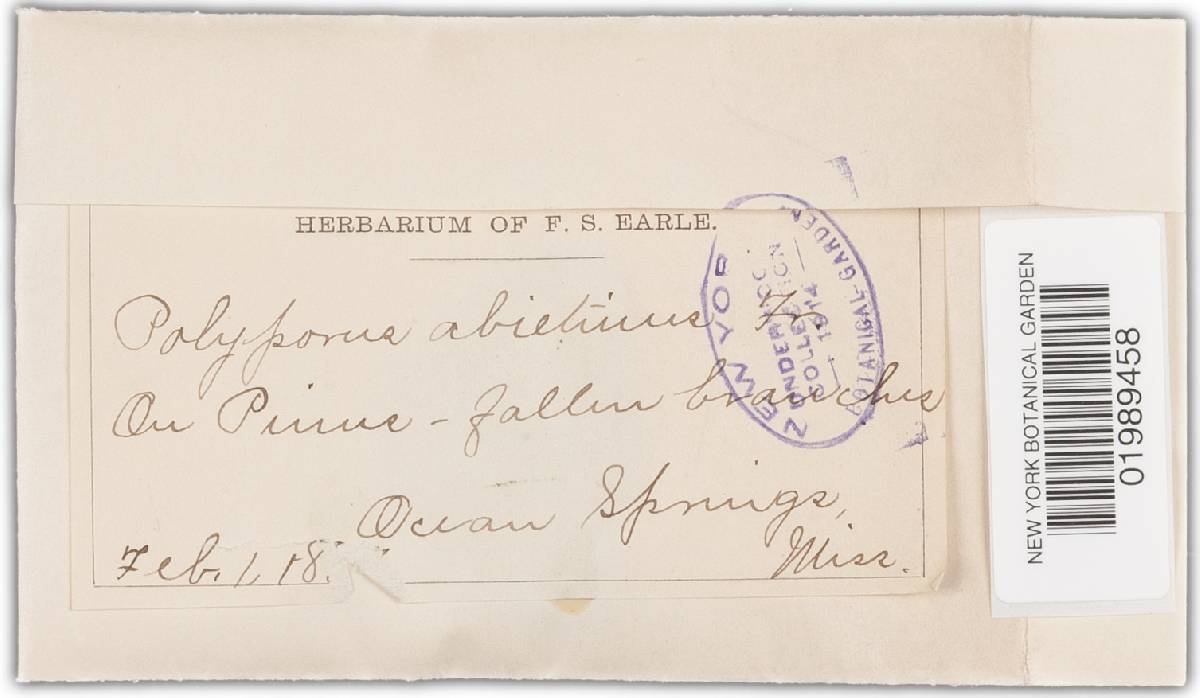 HERBARIUM OF F. S. EARLE.
Polyporus abietinus Fr
On Pinus - fallen branches
Ocean Springs,
Miss.
Feb. 1, 18
NEW YOR
BOTANICAL GARDEN.
UNDERWOOD
COLLECTION
— 1914 —
NEW YORK BOTANICAL GARDEN
01989458